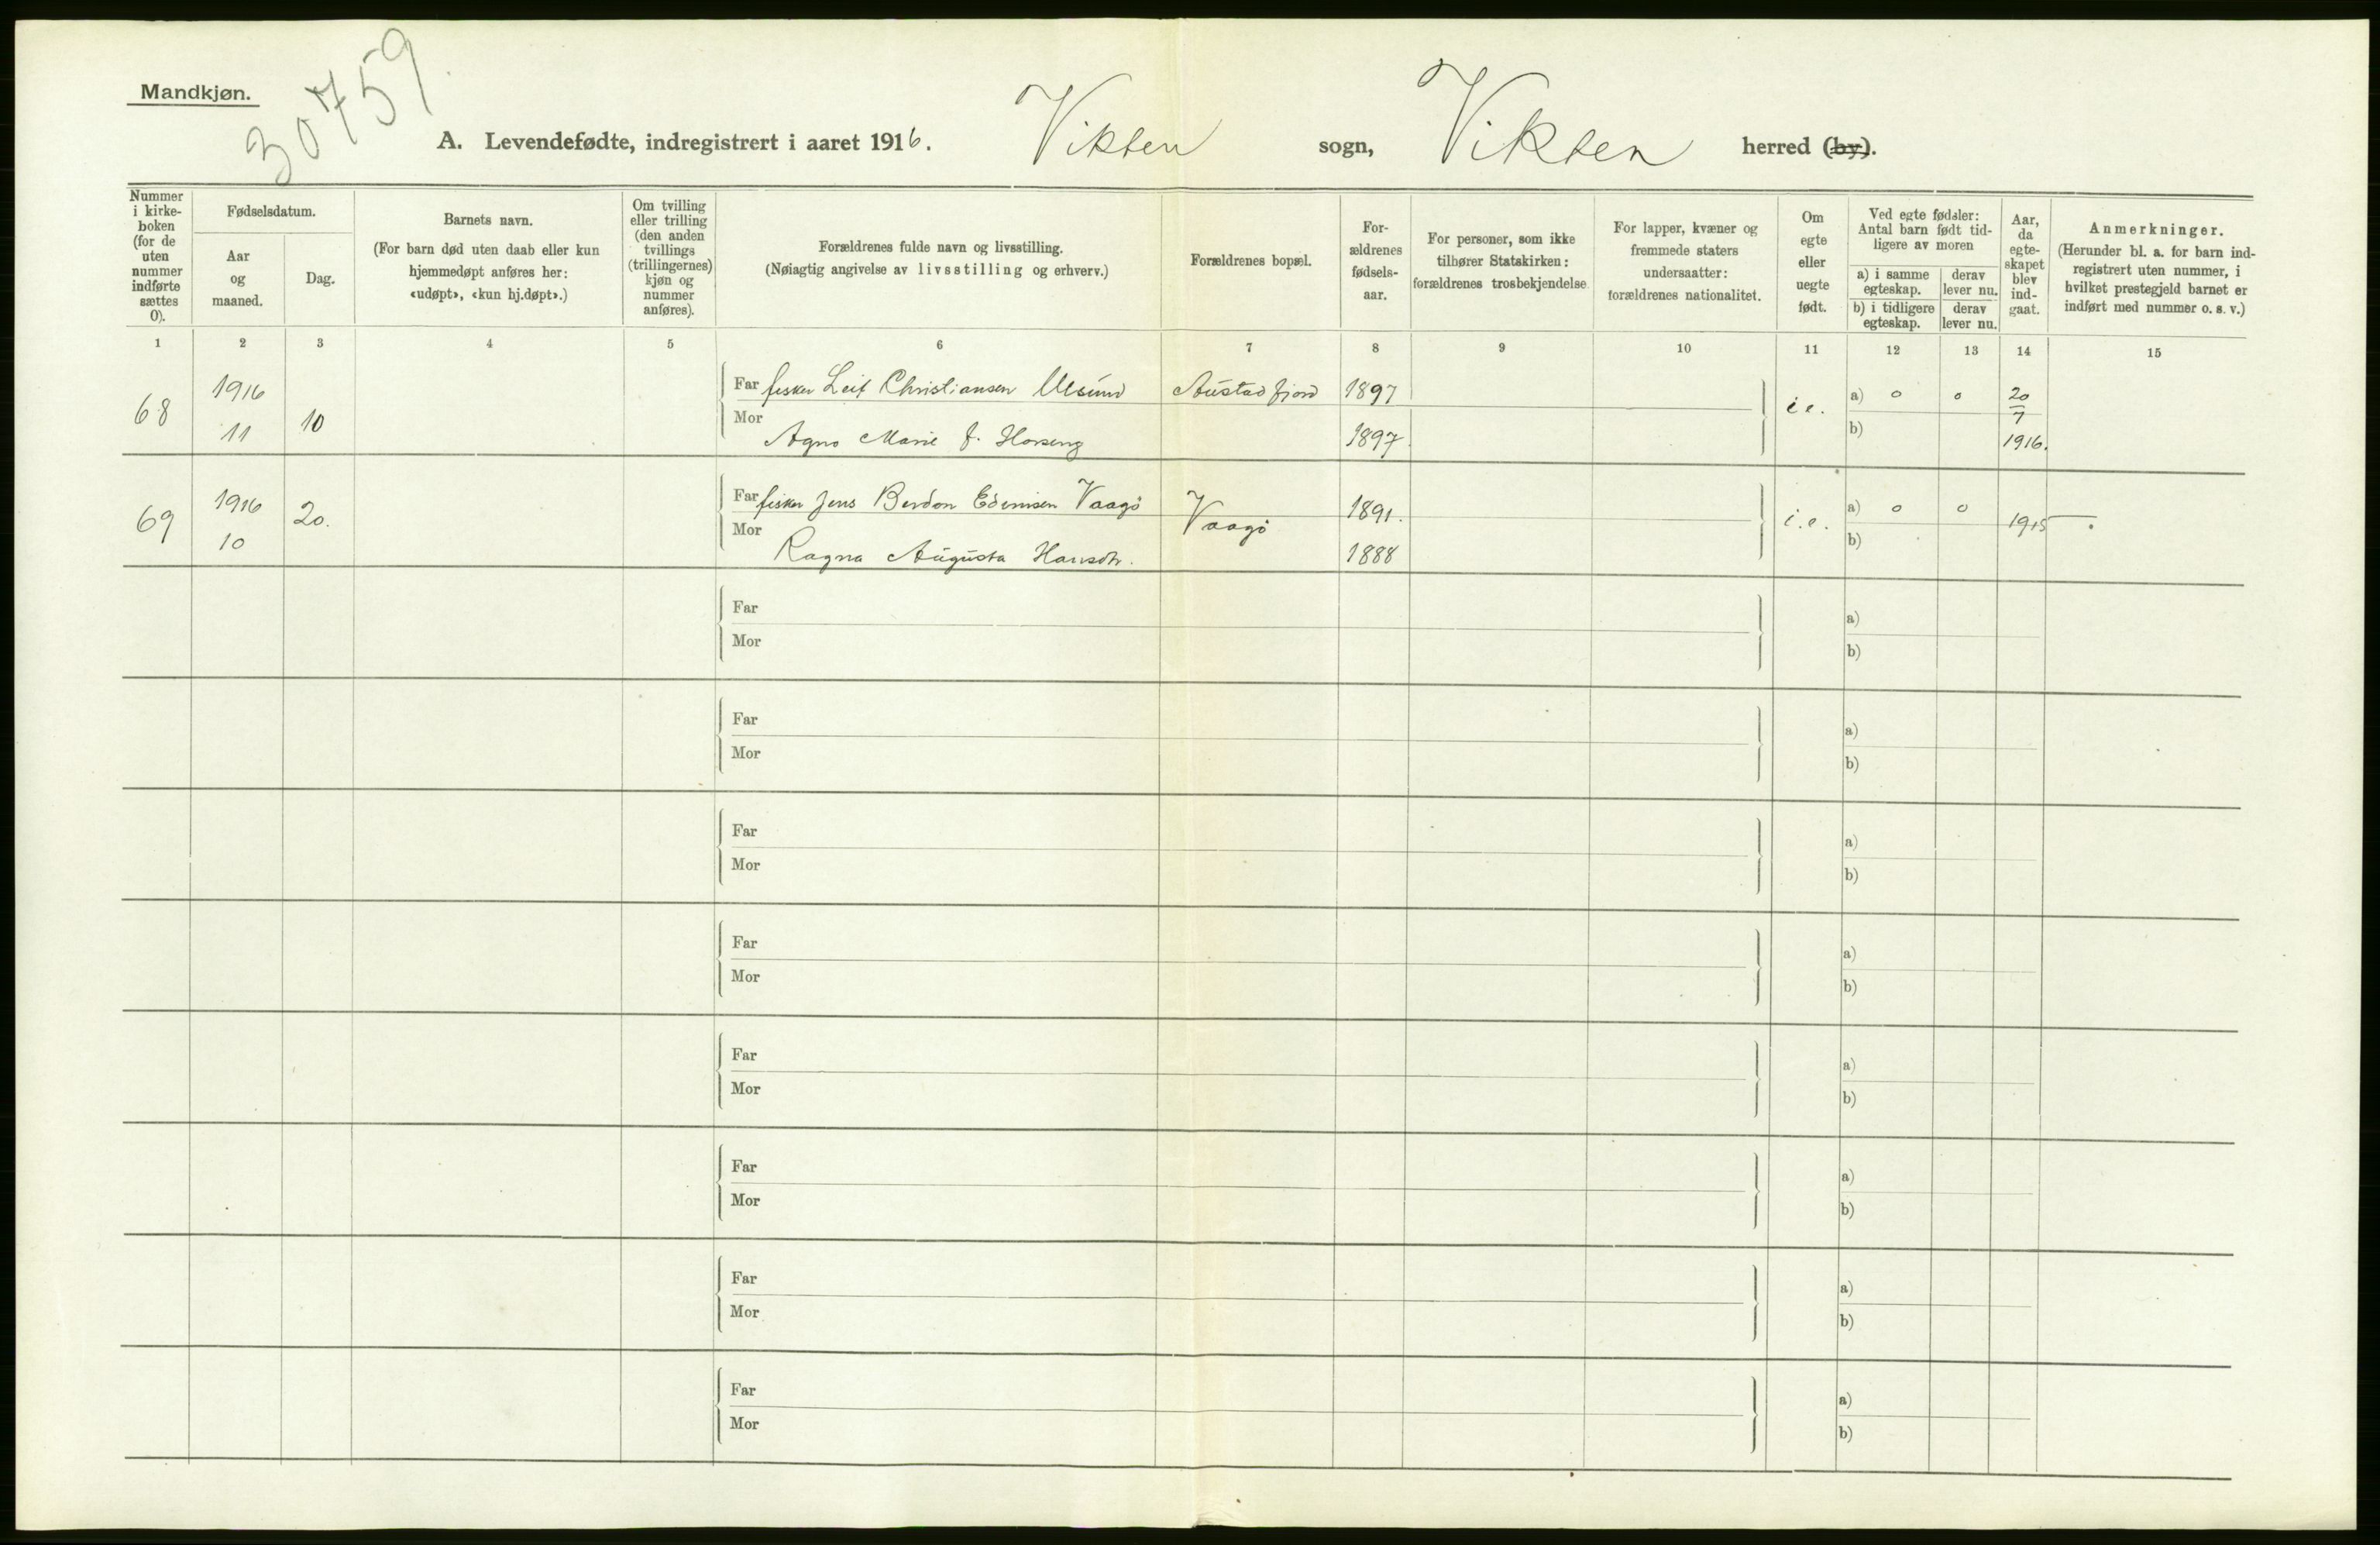 Mandkjøn.
30759.
A. Levendefødte, indregistrert i aaret 1916. Vikten sogn, Vikten herred (by).
Nummer i kirke-boken (for de uten nummer indførte sættes 0).
Fødselsdatum.
Aar og maaned.
Dag.
Barnets navn.
(For barn død uten daab eller kun hjemmedøpt anføres her: «udøpt», «kun hj.døpt».)
Om tvilling eller trilling (den anden tvillings (trillingernes) kjøn og nummer anføres).
Forældrenes fulde navn og livsstilling.
(Nøiagtig angivelse av livsstilling og erhverv.)
Forældrenes bopæl.
For-ældrenes fødsels-aar.
For personer, som ikke tilhører Statskirken: forældrenes trosbekjendelse
For lapper, kvæner og fremmede staters undersaatter: forældrenes nationalitet.
Om egte eller uegte født.
Ved egte fødsler: Antal barn født tid-ligere av moren
a) i samme egteskap.
derav lever nu.
b) i tidligere egteskap.
derav lever nu.
Aar, da egte-skapet blev ind-gaat.
Anmerkninger.
(Herunder bl. a. for barn ind-registrert uten nummer, i hvilket prestegjeld barnet er indført med nummer o. s. v.)
1 2 3 4 5 6 7 8 9 10 11 12 13 14 15
68 1916 11 10 Far fisker Leif Christiansen Austadfjord 1897 i e. a) 0 0 20/7 1916.
Mor Agna Marie f. Horseng 1897. b)
69 1916 10 20. Far fisker Jens Berdon Edvinsen Vaagö Vaagö 1891. i.e. a) 0 0 1915 —.
Mor Ragna Augusta Hansdtr. 1888 b)
Far a)
Mor b)
Far a)
Mor b)
Far a)
Mor b)
Far a)
Mor b)
Far a)
Mor b)
Far a)
Mor b)
Far a)
Mor b)
Far a)
Mor b)